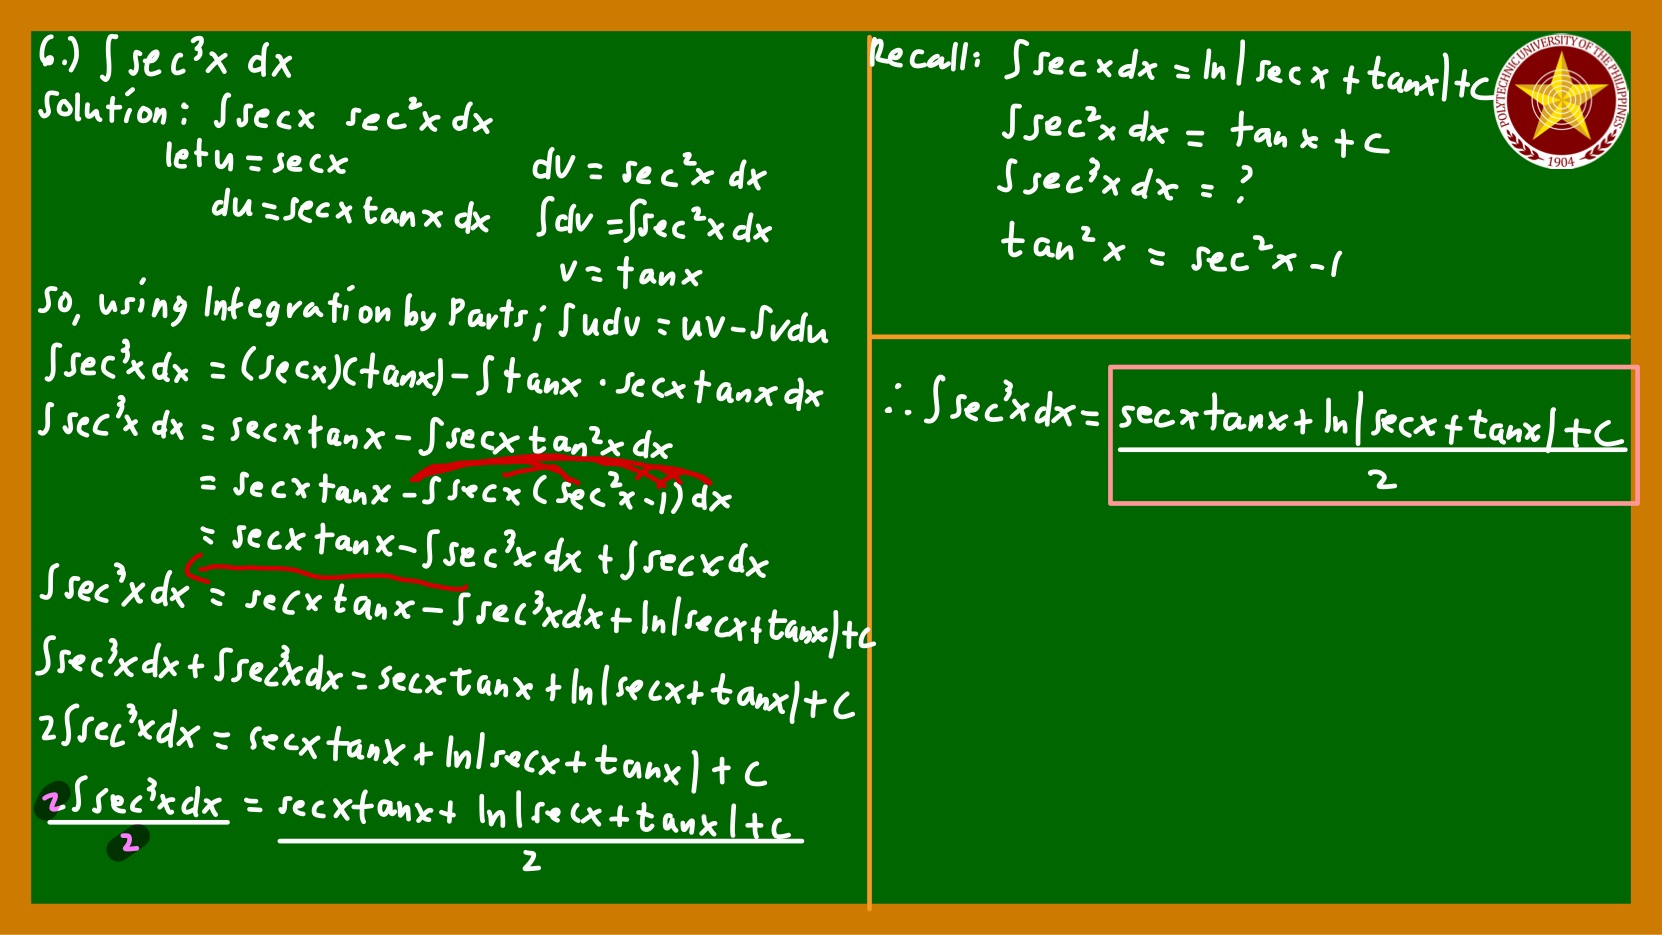 6.) ∫ sec³x dx
Solution: ∫ secx sec²x dx
let u = secx
dv = sec²x dx
du = secx tanx dx
∫dv = ∫sec²x dx
v = tanx
So, using Integration by Parts; ∫udv = uv - ∫vdu
∫sec³x dx = (secx)(tanx) - ∫ tanx · secx tanx dx
∫sec³x dx = secx tanx - ∫secx tan²x dx
= secx tanx - ∫ secx (sec²x - 1) dx
= secx tanx - ∫sec³x dx + ∫secx dx
∫sec³x dx = secx tanx - ∫sec³x dx + ln|secx + tanx| + C
∫sec³x dx + ∫sec³x dx = secx tanx + ln|secx + tanx| + C
2∫sec³x dx = secx tanx + ln|secx + tanx| + C
2∫sec³x dx = secx tanx + ln|secx + tanx| + C
2 2
Recall: ∫ secx dx = ln|secx + tanx| + C
∫sec²x dx = tanx + C
∫sec³x dx = ?
tan²x = sec²x - 1
POLYTECHNIC UNIVERSITY OF THE PHILIPPINES
1904
∴ ∫sec³x dx = secx tanx + ln|secx + tanx| + C
2